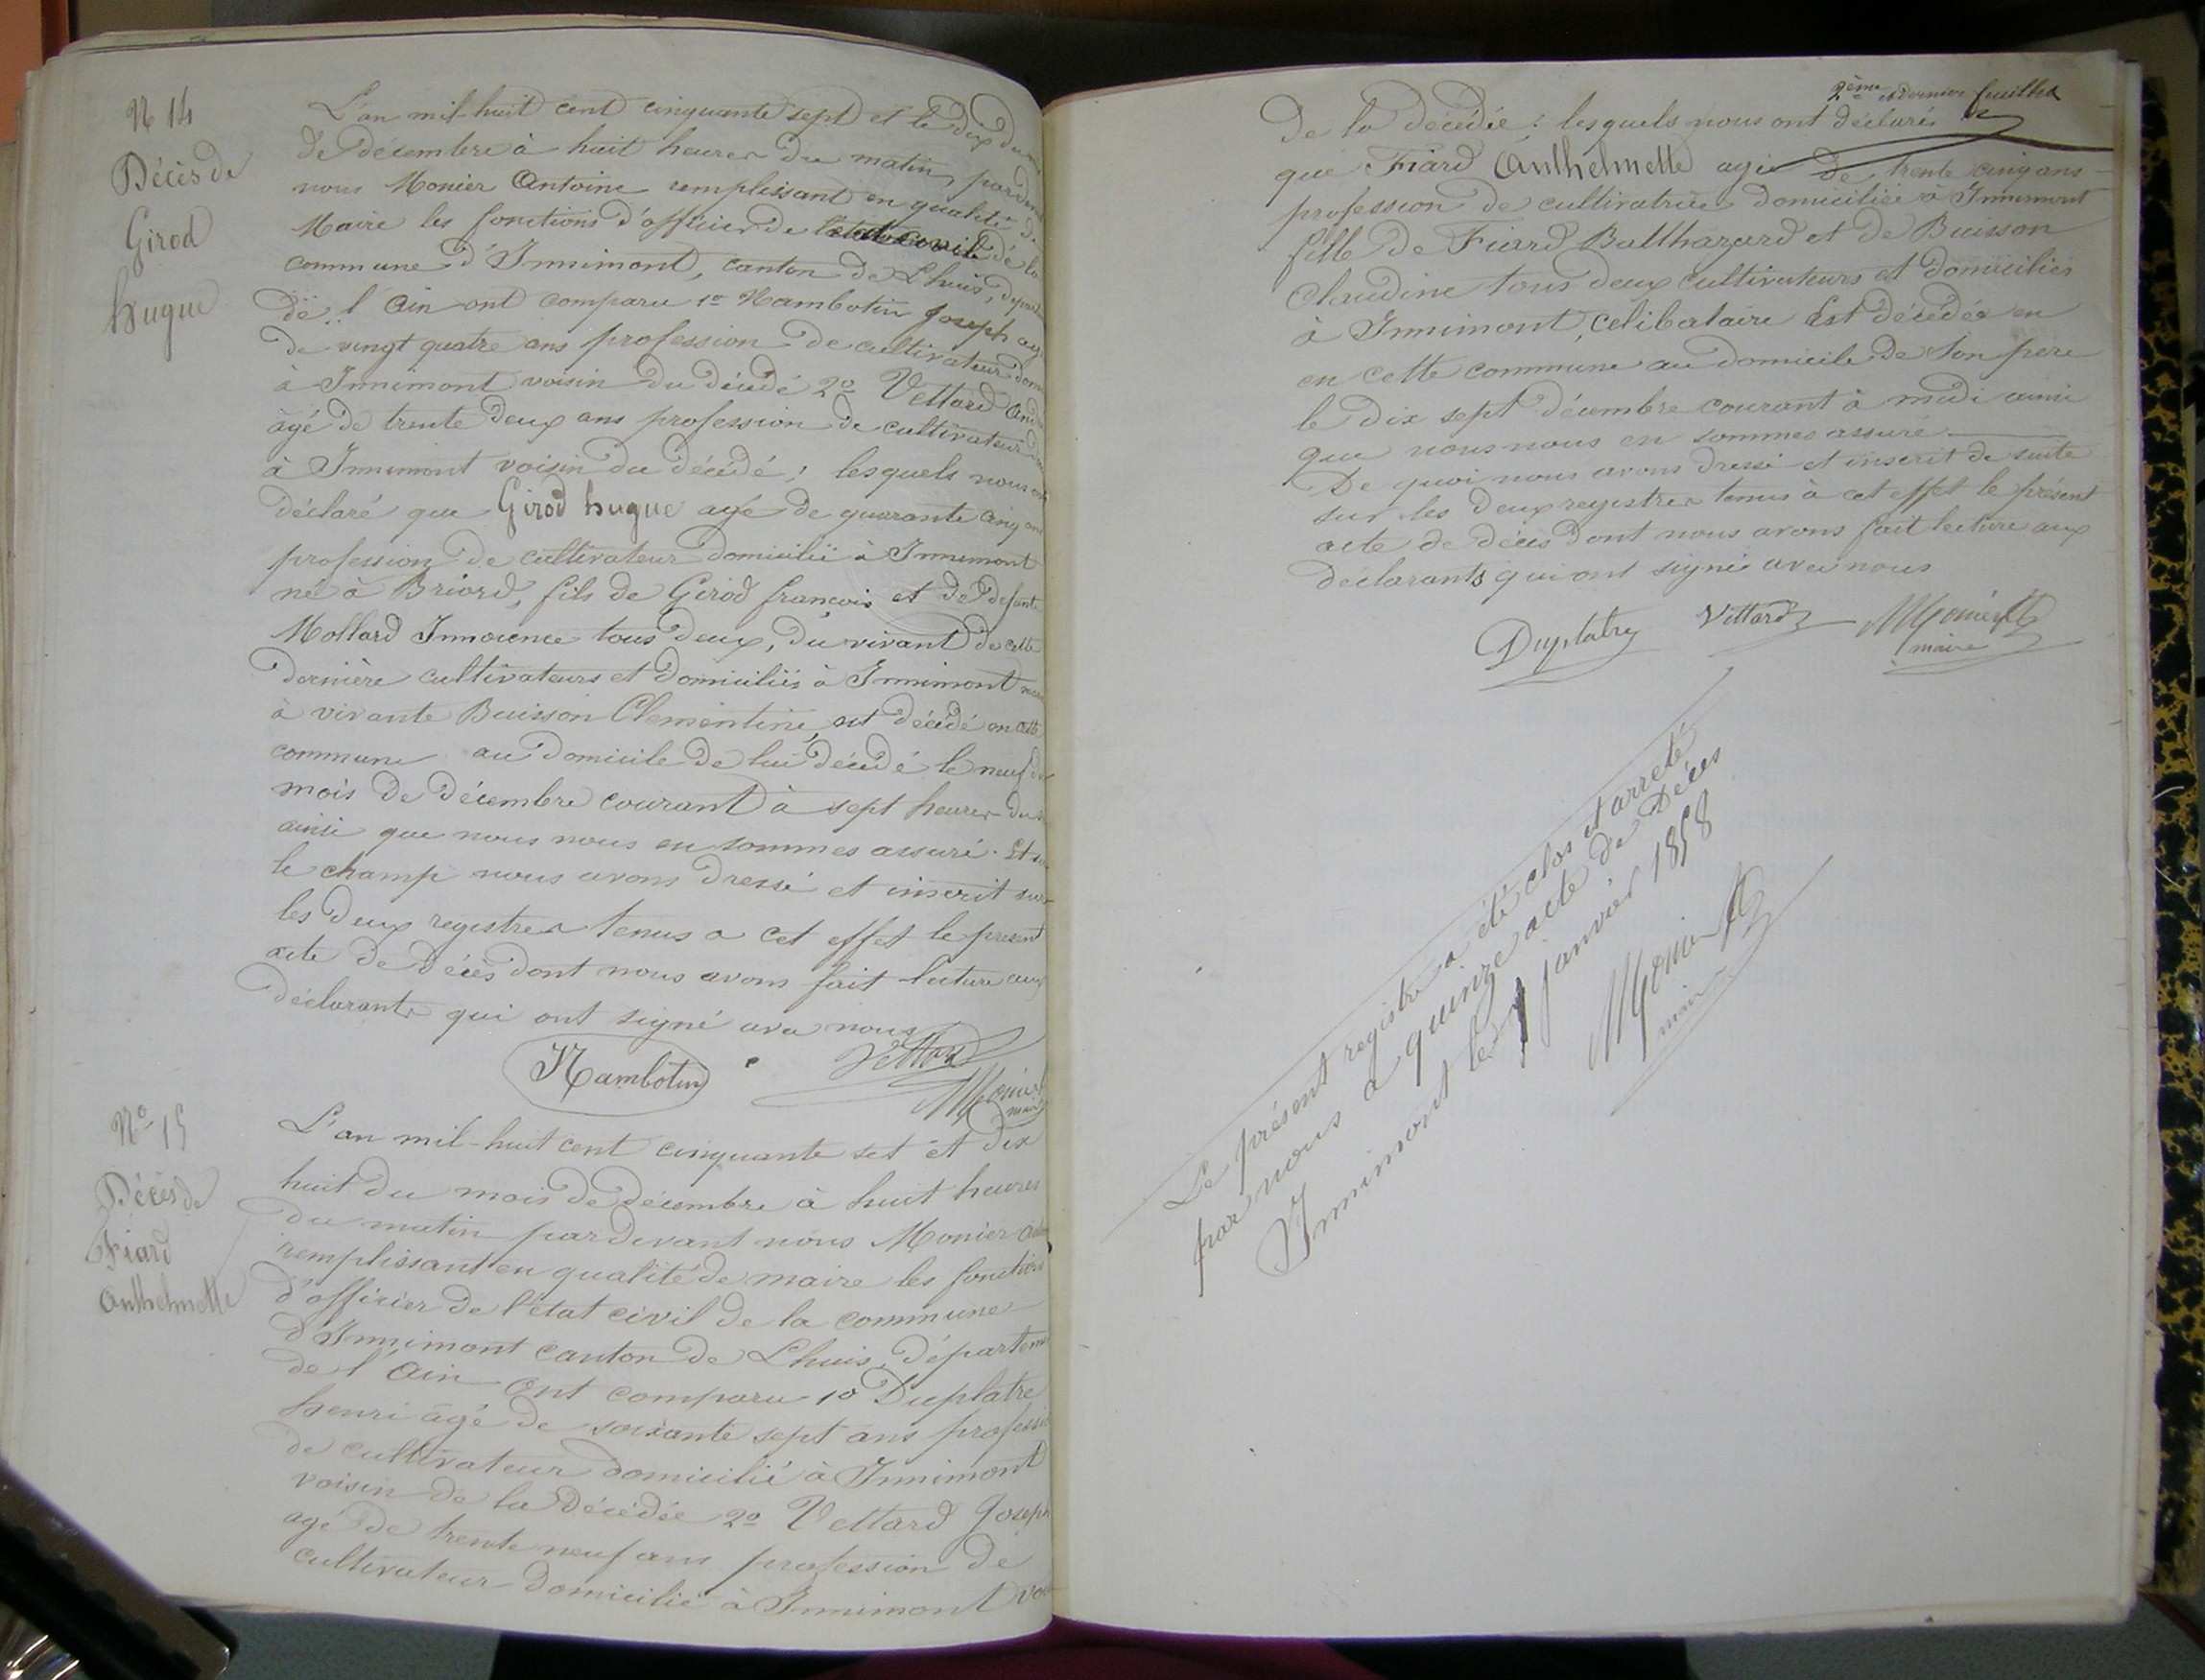 N 14
Décès de
Girod
hugue
L'an mil huit cent cinquante sept et le dix du
de décembre à huit heures du matin, pardevant
nous Monier Antoine remplissant en qualité de
Maire les fonctions d'officier de l'état civil de la
commune d'Innimont, canton de Lhuis,
de l'Ain ont comparu 1o Nambotin Joseph agé
de vingt quatre ans profession de cultivateur
à Innimont voisin du décédé 2o Vettard
âgé de trente deux ans profession de cultivateur
à Innimont voisin du décédé; lesquels nous ont
déclaré que Girod hugue agé de quarante cinq ans
profession de cultivateur domicilié à Innimont
né à Briord, fils de Girod françois et de défunte
Mollard Innocence tous deux, du vivant de cette
dernière cultivateurs et domiciliés à Innimont
à vivante Buisson Clementine, est décédé en cette
commune au domicile de lui décédé le neuf du
mois de décembre courant à sept heures du
ainsi que nous nous en sommes assuré. Et sur
le champ nous avons dressé et inscrit sur
les deux registres tenus a cet effet le present
acte de décès dont nous avons fait lecture aux
déclarants qui ont signé avec nous
Nambotin Vettard Monier
maire
No 15
Décès de
Fiard
Anthelmette
L'an mil-huit cent cinquante set et dix
huit du mois de décembre à huit heures
du matin pardevant nous Monier
remplissant en qualité de maire les fonctions
d'officier de l'état civil de la commune
d'Innimont canton de Lhuis, département
de l'Ain ont comparu 1o Duplatre
henri âgé de soixante sept ans profession
de cultivateur domicilié à Innimont
voisin de la décédée 2o Vettard Joseph
agé de trente neuf ans profession de
cultivateur domicilié à Innimont
2ème et dernier feuillet
De la décédée: lesquels nous ont déclaré
que Fiard Anthelmette agée de trente cinq ans
profession de cultivatrice domiciliée à Innimont
fille de Fiard Balthazard et de Buisson
Claudine tous deux cultivateurs et domiciliés
à Innimont, célibataire Est décédée en
en cette commune au domicile de son père
le dix sept décembre courant à midi ainsi
que nous nous en sommes assuré
De quoi nous avons dressé et inscrit de suite
sur les deux registres tenus à cet effet le présent
acte de décès dont nous avons fait lecture aux
déclarants qui ont signé avec nous
Duplatre Vettard Monier
maire
Le présent registre a été clos et arreté
par nous a quinze acte de Décès
Innimont le janvier 1858
Monier
maire